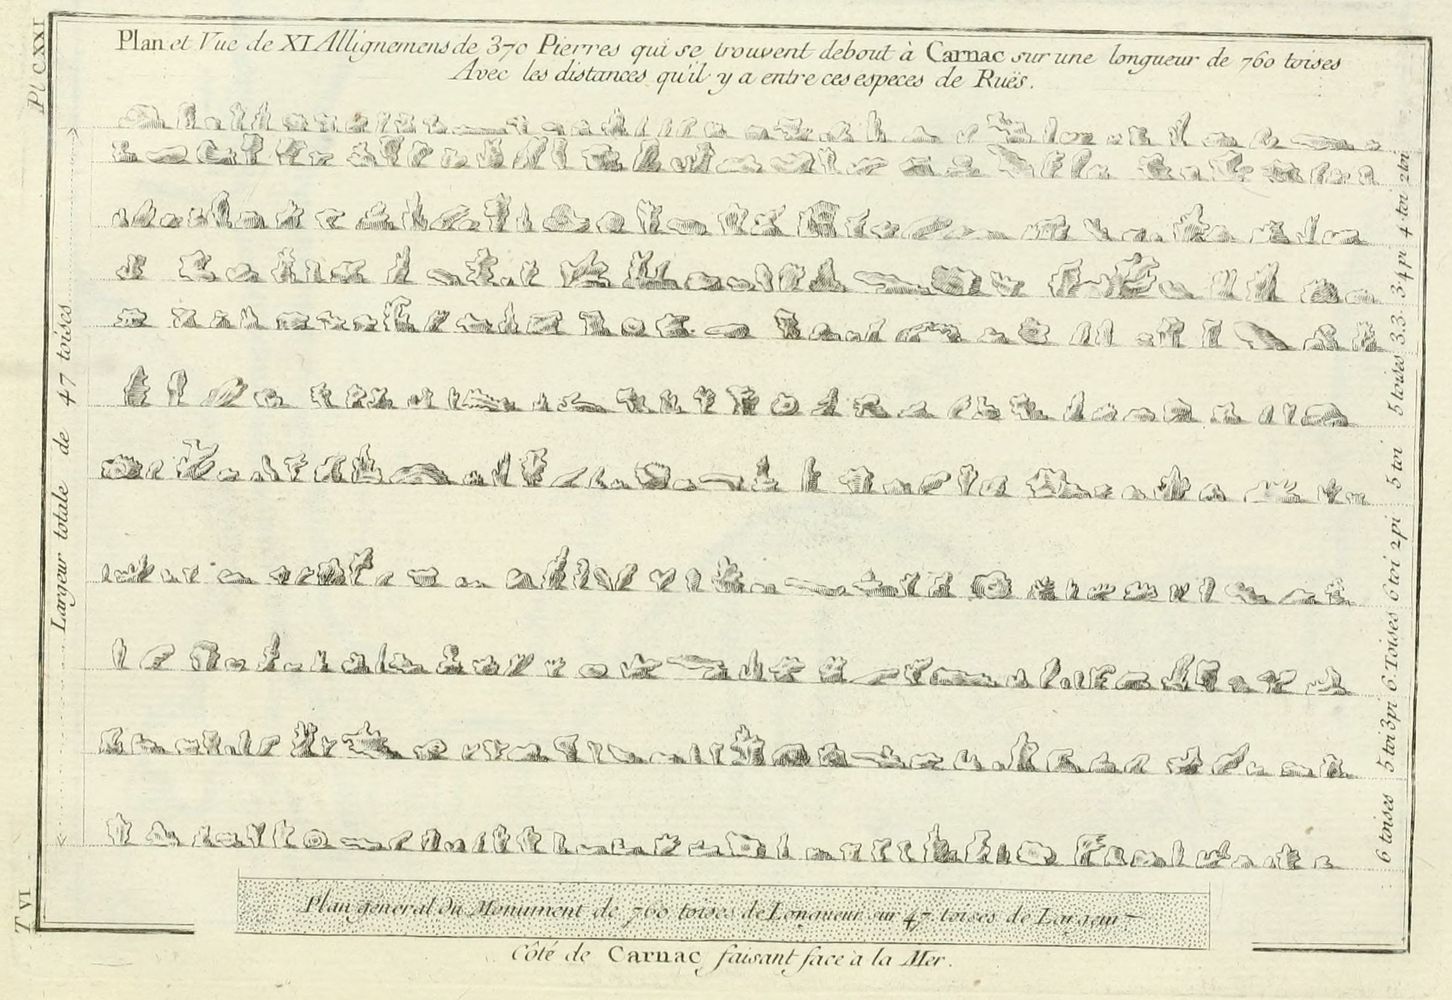 Pl CXXI
Plan et Vue de XI Allignemens de 370 Pierres qui se trouvent debout à Carnac sur une longueur de 760 toises
Avec les distances qu'il y a entre ces especes de Ruës.
Largeur totale de 47 toises
2 toi
4 toi
3 4 pi
3.3.
5 toises
5 toi
6 toi 2 pi
6. Toises
5 toi 3 pi
6 toises
Plan general du Monument de 760 toises de Longueur sur 47 toises de Largeur
T VI
Côté de Carnac faisant face à la Mer.